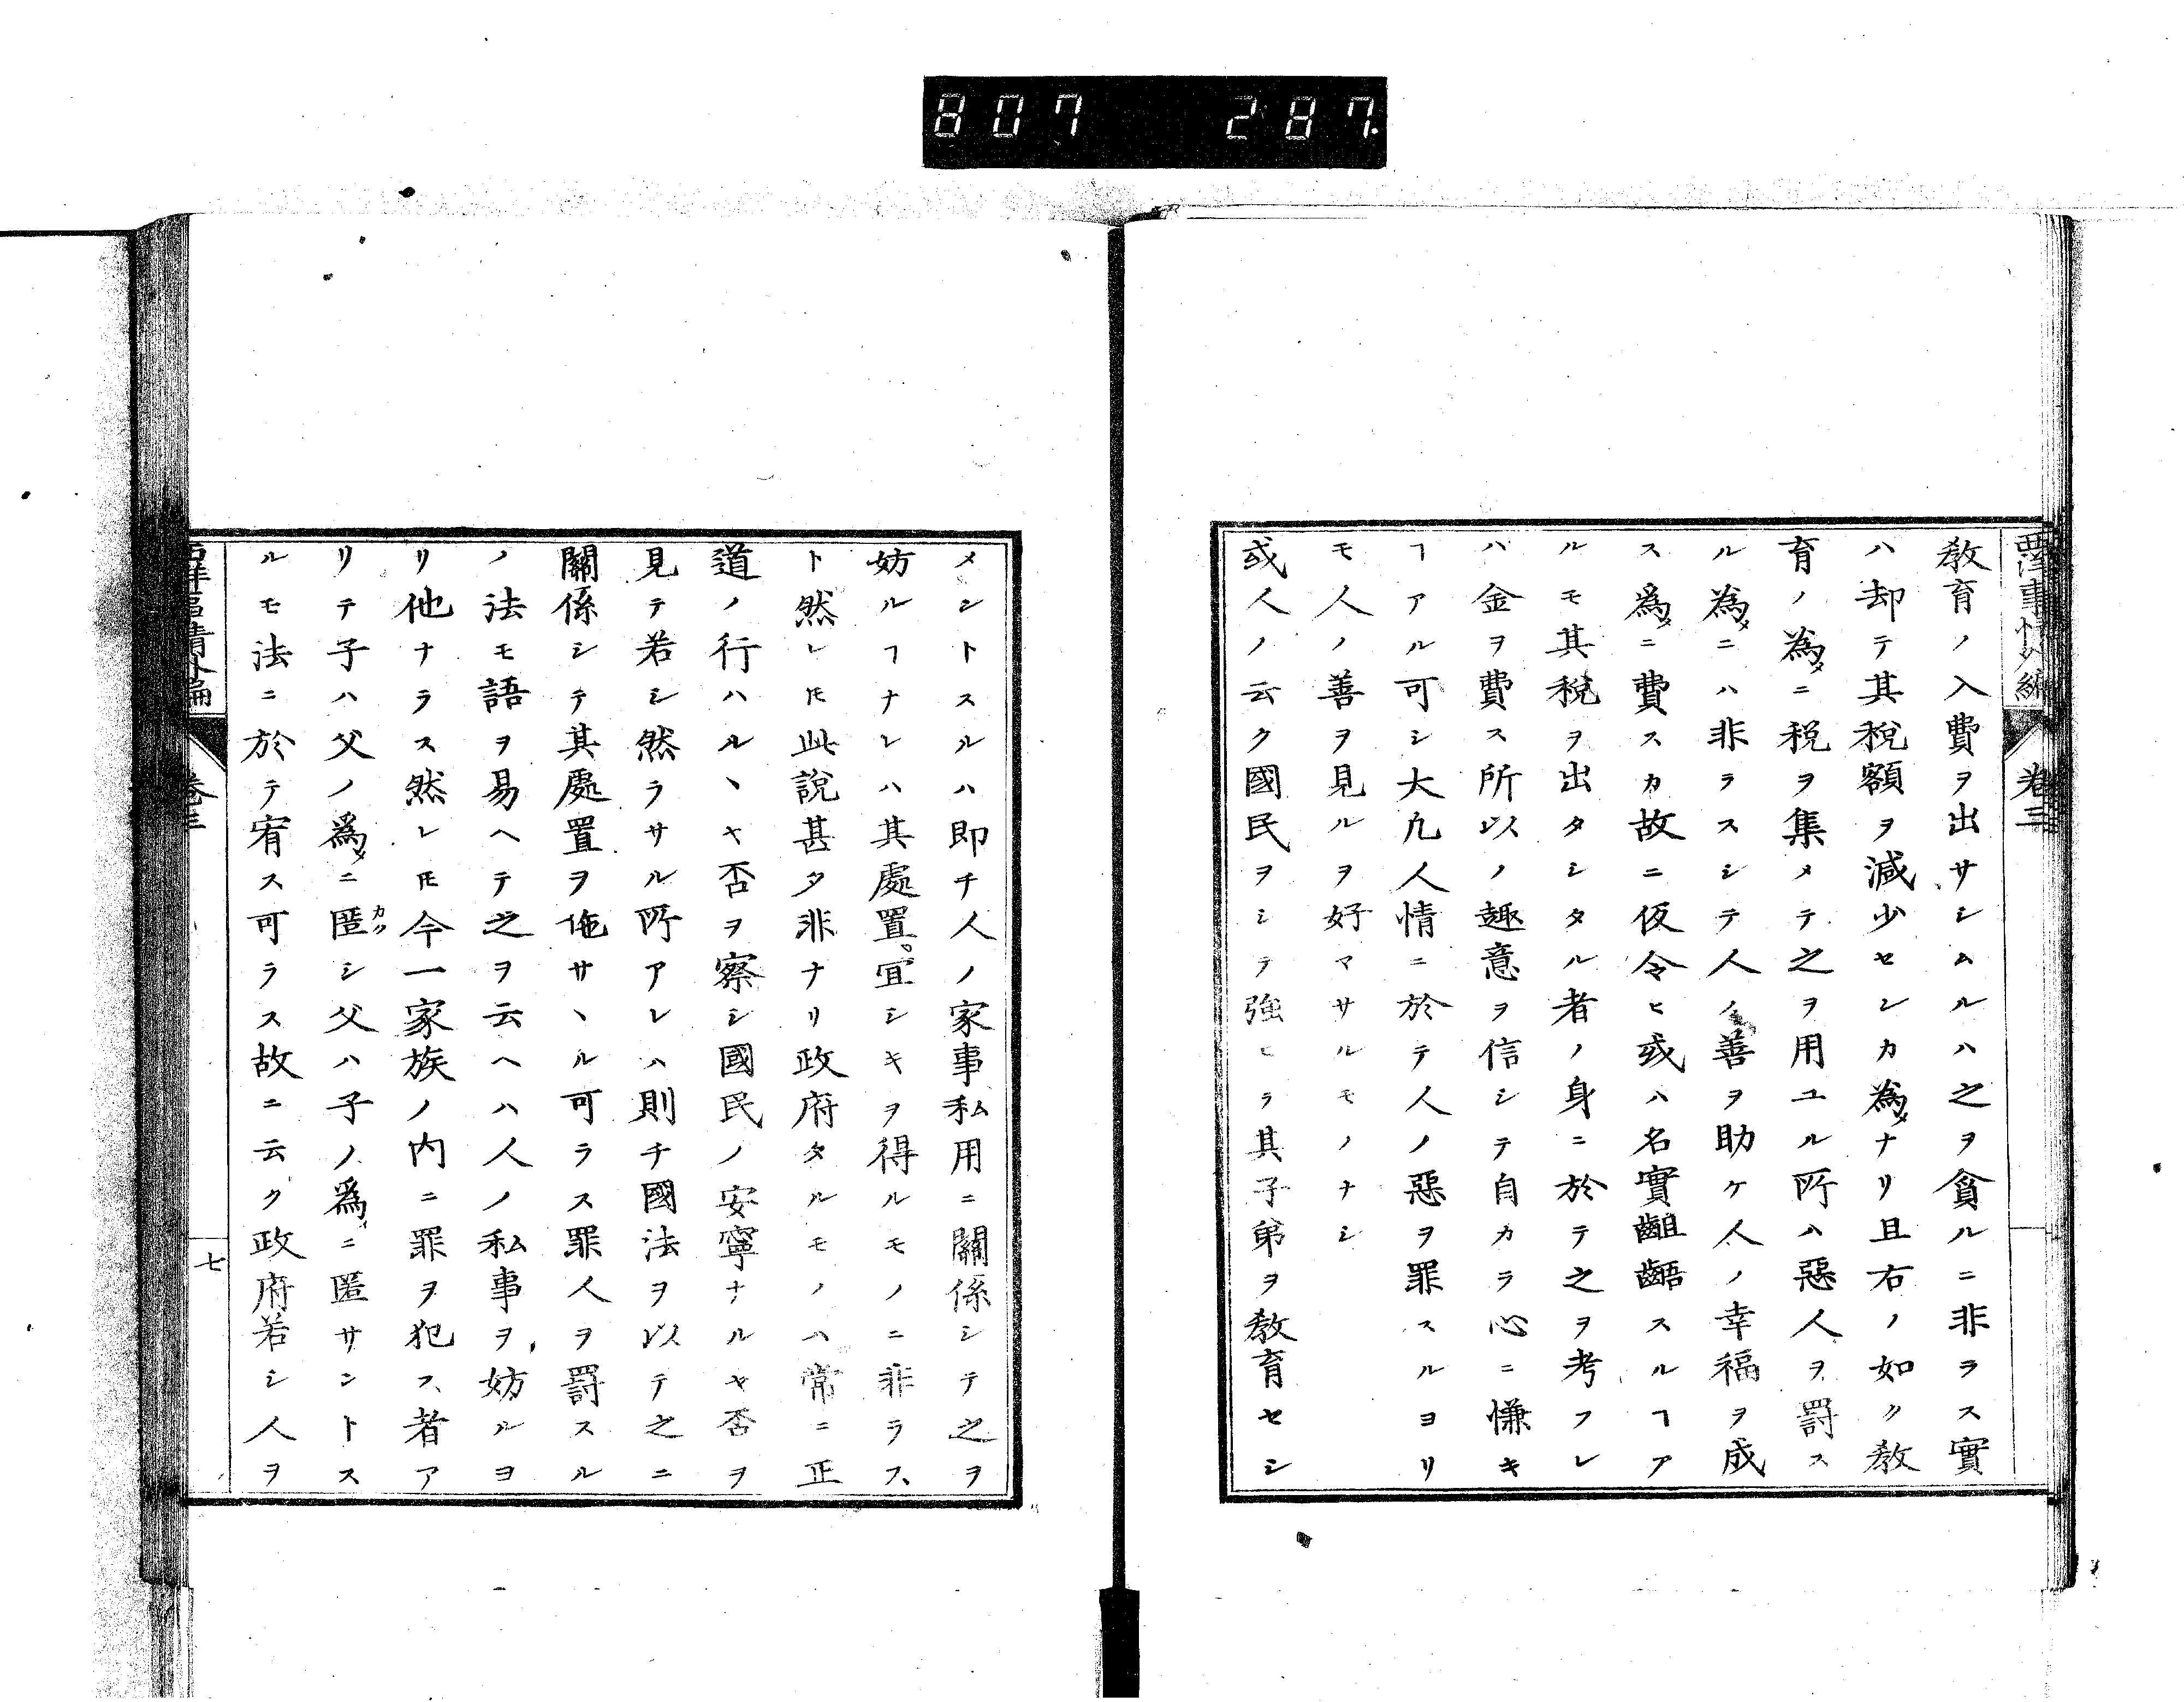 807 287.
西洋事情外編 卷三
教育ノ入費ヲ出サシムルハ之ヲ貪ルニ非ラス實
ハ却テ其稅額ヲ減少センカ為メナリ且右ノ如ク教
育ノ為メニ税ヲ集メテ之ヲ用ユル所ハ惡人ヲ罰ス
ル為メニハ非ラスシテ人ノ善ヲ助ケ人ノ幸福ヲ成
ス爲メニ費スカ故ニ仮令ヒ或ハ名實齟齬スルヿア
ルモ其税ヲ出タシタル者ノ身ニ於テ之ヲ考フレ
ハ金ヲ費ス所以ノ趣意ヲ信シテ自カラ心ニ慊キ
ヿアル可シ大凢人情ニ於テ人ノ惡ヲ罪スルヨリ
モ人ノ善ヲ見ルヲ好マサルモノナシ
或人ノ云ク國民ヲシテ強ヒテ其子弟ヲ教育セシ
メントスルハ即チ人ノ家事私用ニ關係シテ之ヲ
妨ルヿナレハ其處置宜シキヲ得ルモノニ非ラス
ト然レ𪜈此說甚タ非ナリ政府タルモノハ常ニ正
道ノ行ハルヽヤ否ヲ察シ國民ノ安寧ナルヤ否ヲ
見テ若シ然ラサル所アレハ則チ國法ヲ以テ之ニ
關係シテ其處置ヲ施サヽル可ラス罪人ヲ罰スル
ノ法モ語ヲ易ヘテ之ヲ云ヘハ人ノ私事ヲ妨ルヨ
リ他ナラス然レ𪜈今一家族ノ内ニ罪ヲ犯ス者ア
リテ子ハ父ノ爲メニ匿カクシ父ハ子ノ爲メニ匿サントス
ルモ法ニ於テ宥ス可ラス故ニ云ク政府若シ人ヲ
西洋事情外編 卷三 七